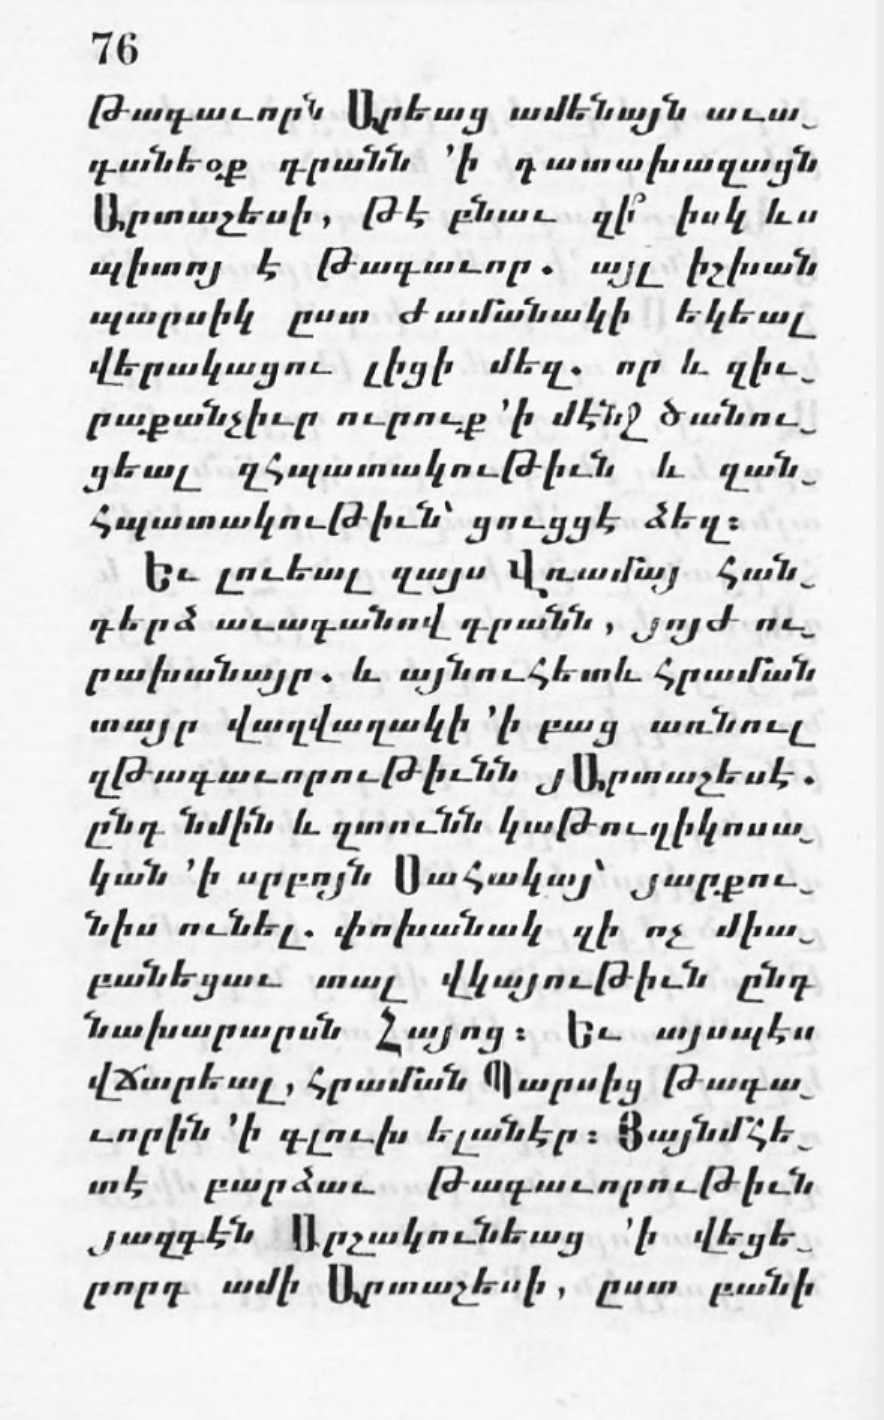 76
Թագաւորն Արեաց ամենայն աւա֊
գանեօք դրանն ՚ի դատախազացն
Արտաշեսի, թէ բնաւ զի՞ իսկ ևս
պիտոյ է Թագաւոր. այլ իշխան
պարսիկ ըստ ժամանակի եկեալ
վերակացու լիցի մեզ. որ և զիւ֊
րաքանչիւր ուրուք ՚ի մէնջ ծանու֊
ցեալ զհպատակութիւն և զան֊
հպատակութիւն՝ ցուցցէ ձեզ։
Եւ լուեալ զայս Վռամայ հան֊
դերձ աւագանով դրանն, յոյժ ու֊
րախանայր. և այնուհետև հրաման
տայր վաղվաղակի ՚ի բաց առնուլ
զԹագաւորութիւնն յԱրտաշեսէ.
ընդ նմին և զտունն կաթուղիկոսա֊
կան ՚ի սրբոյն Սահակայ՝ յարքու֊
նիս ունել. փոխանակ զի ոչ միա֊
բանեցաւ տալ վկայութիւն ընդ
նախարարսն Հայոց։ Եւ այսպէս
վճարեալ, հրաման Պարսից Թագա֊
ւորին ՚ի գլուխ ելանէր։ Յայնմհե֊
տէ բարձաւ Թագաւորութիւն
յազգէն Արշակունեաց ՚ի վեցե֊
րորդ ամի Արտաշեսի, ըստ բանի